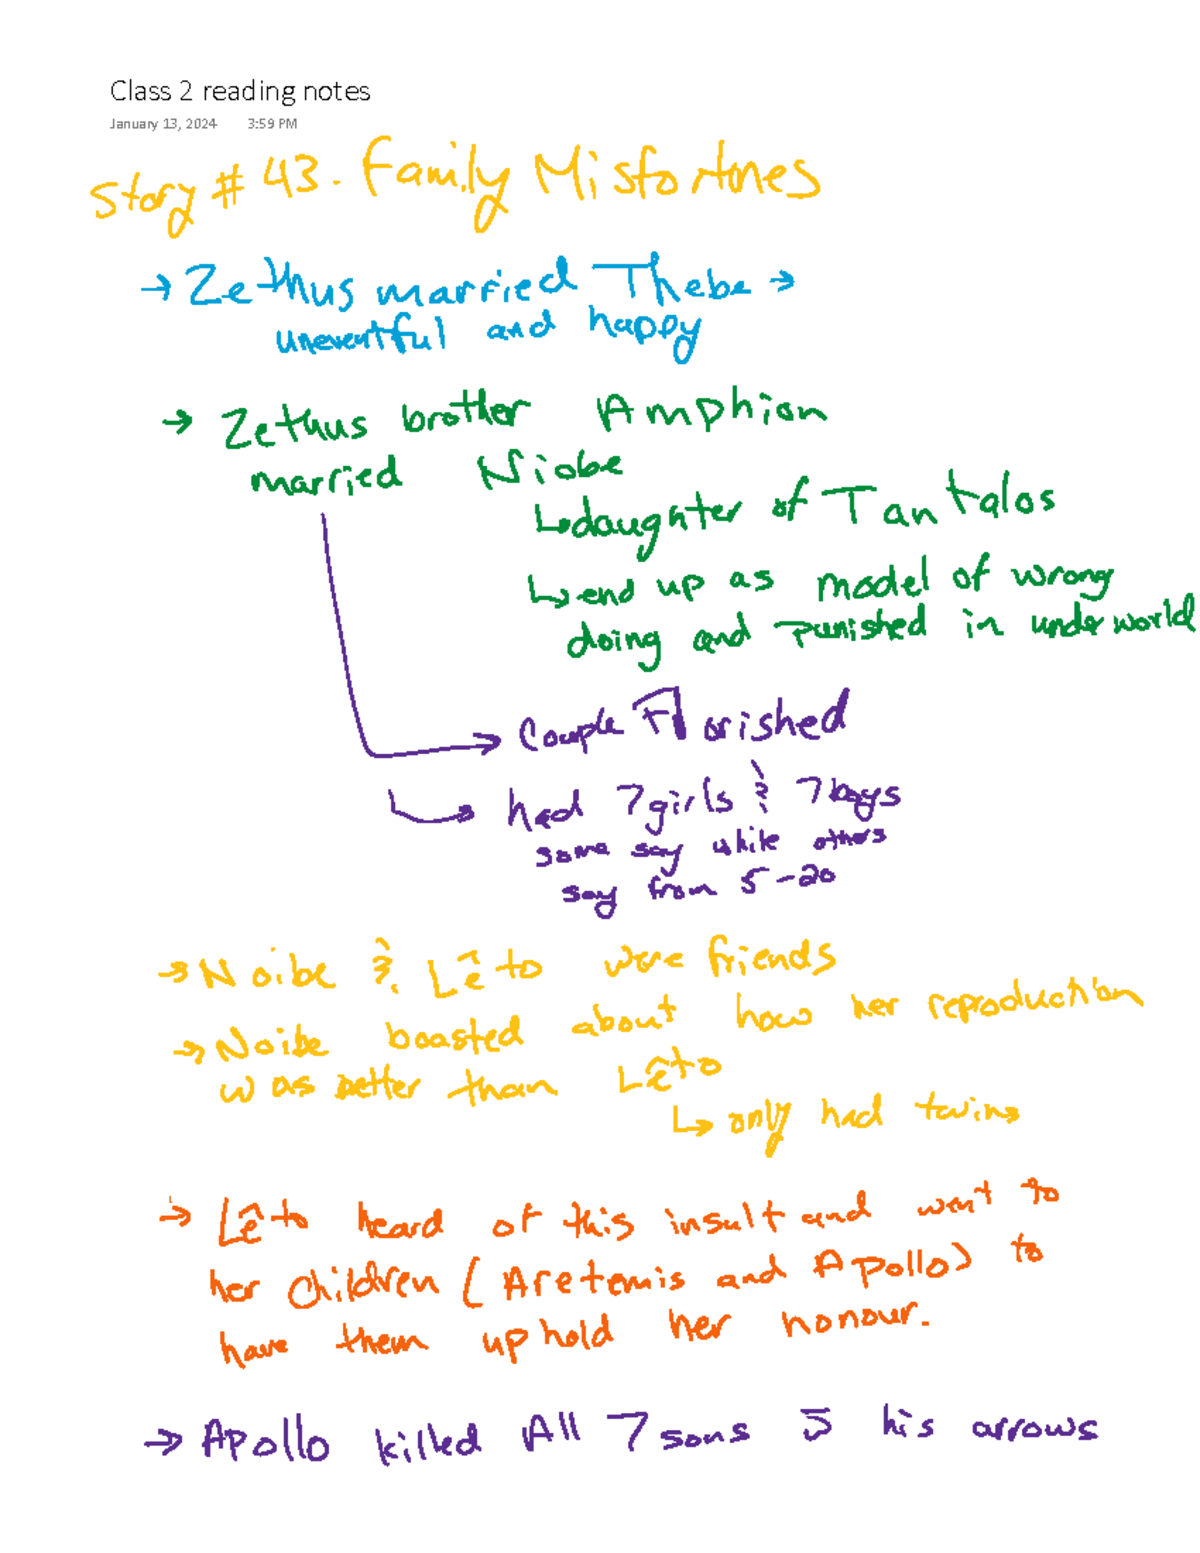 Class 2 reading notes
January 13, 2024 3:59 PM
Story # 43. Family Misfortnes
→ Zethus married Thebe →
uneventful and happy
→ Zethus brother Amphion
married Niobe
↳ daughter of Tantalos
↳ end up as model of wrong
doing and punished in underworld
→ Couple Florished
↳ had 7 girls & 7 boys
some say while others
say from 5-20
→ Noibe & Lêto were friends
→ Noibe boasted about how her reproduction
was better than Lêto
↳ only had twins
→ Lêto heard of this insult and went to
her children (Aretemis and Apollo) to
have them uphold her honour.
→ Apollo killed All 7 sons his arrows